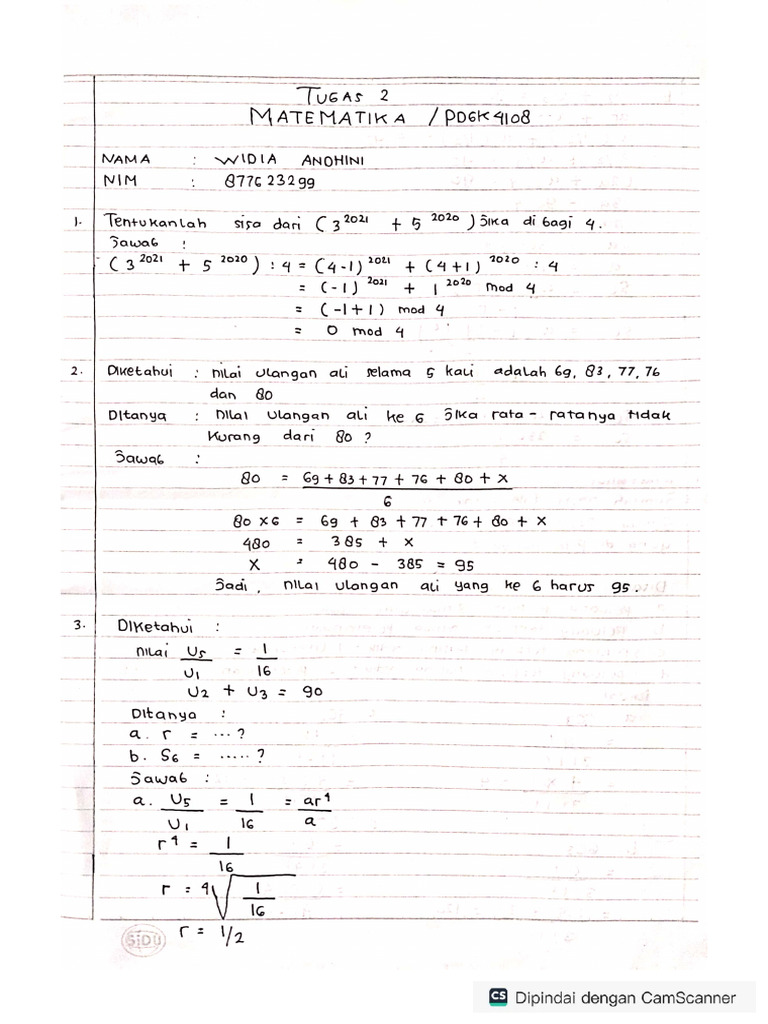 TUGAS 2
MATEMATIKA / PDGK4108
NAMA : WIDIA ANDHINI
NIM : 877623299
1. Tentukanlah sisa dari (3^2021 + 5^2020) Jika di bagi 4.
Jawab :
(3^2021 + 5^2020) : 4 = (4-1)^2021 + (4+1)^2020 : 4
= (-1)^2021 + 1^2020 mod 4
= (-1+1) mod 4
= 0 mod 4
2. Diketahui : nilai ulangan ali selama 5 kali adalah 69, 83, 77, 76
dan 80
Ditanya : nilai ulangan ali ke 6 Jika rata-ratanya tidak
kurang dari 80 ?
Jawab :
80 = 69 + 83 + 77 + 76 + 80 + x
6
80 x 6 = 69 + 83 + 77 + 76 + 80 + x
480 = 385 + x
x = 480 - 385 = 95
Jadi, nilai ulangan ali yang ke 6 harus 95.
3. Diketahui :
nilai U5/U1 = 1/16
U2 + U3 = 90
Ditanya :
a. r = ...?
b. S6 = .....?
Jawab :
a. U5/U1 = 1/16 = ar^4/a
r^4 = 1/16
r = 4√1/16
r = 1/2
SiDU
CS Dipindai dengan CamScanner